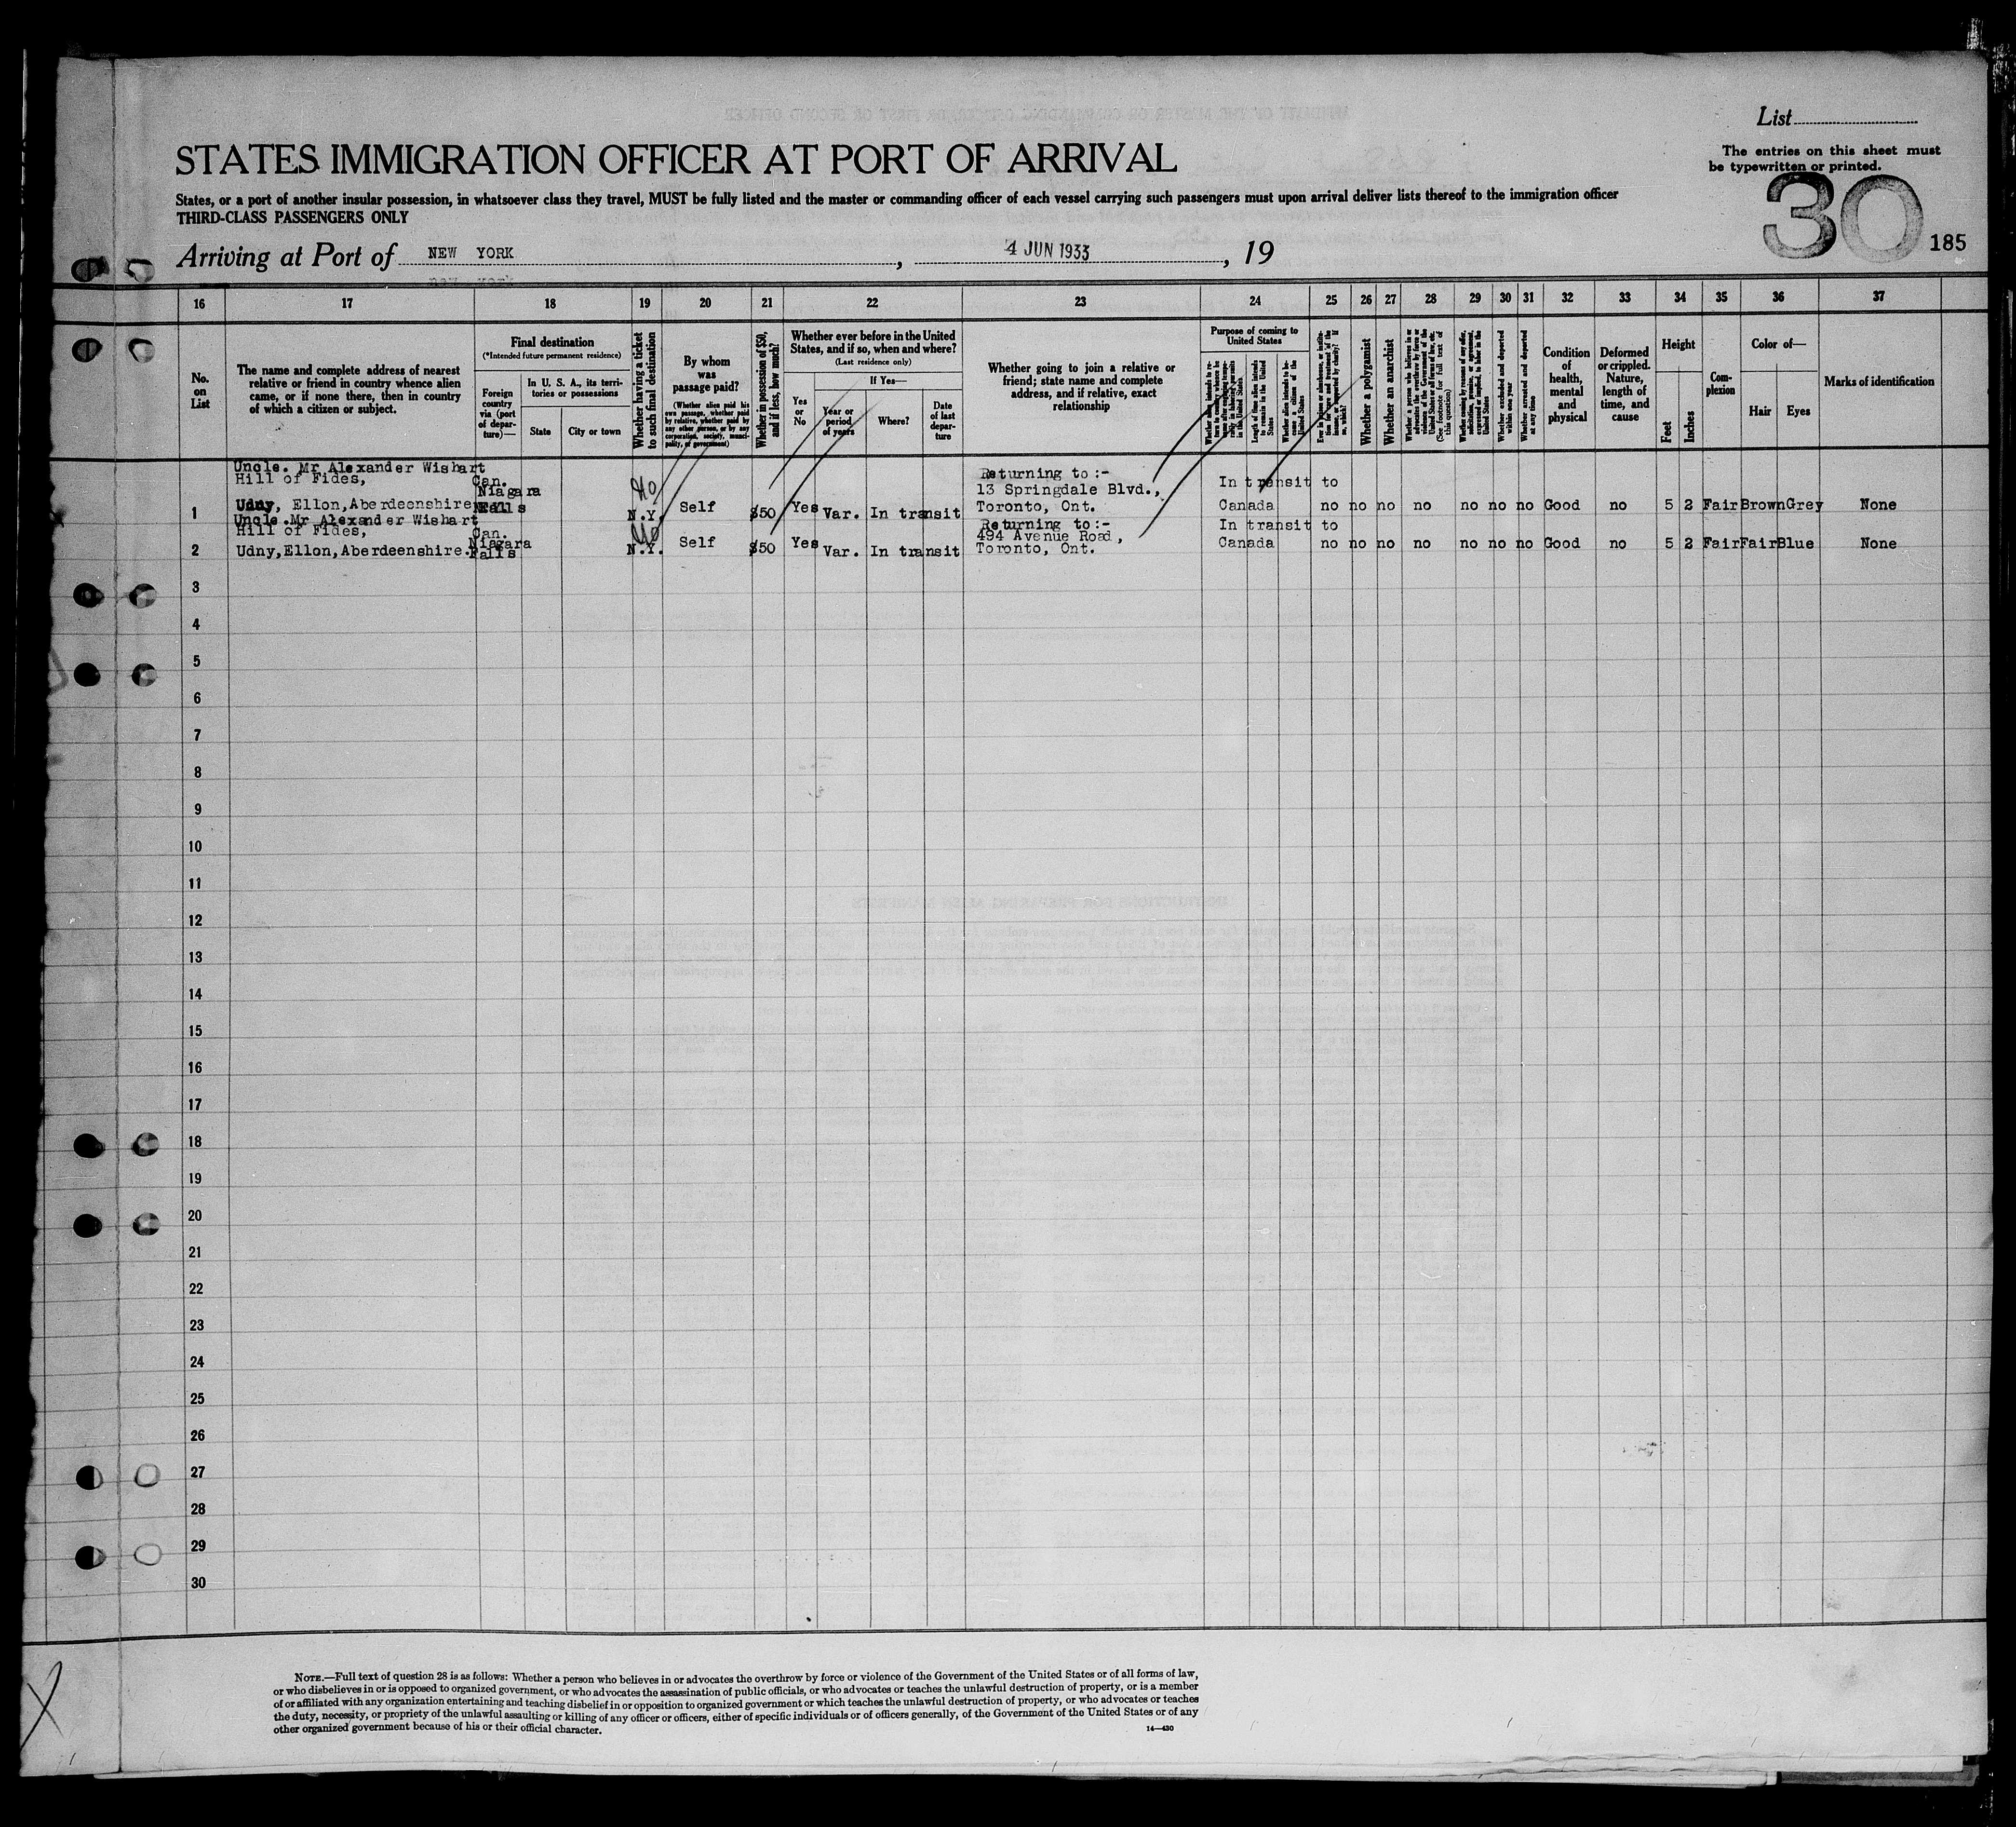 List
The entries on this sheet must
be typewritten or printed.
STATES IMMIGRATION OFFICER AT PORT OF ARRIVAL
States, or a port of another insular possession, in whatsoever class they travel, MUST be fully listed and the master or commanding officer of each vessel carrying such passengers must upon arrival deliver lists thereof to the immigration officer
THIRD-CLASS PASSENGERS ONLY
30
185
Arriving at Port of NEW YORK, 4 JUN 1933, 19
16 17 18 19 20 21 22 23 24 25 26 27 28 29 30 31 32 33 34 35 36 37
No.
on
List
The name and complete address of nearest
relative or friend in country whence alien
came, or if none there, then in country
of which a citizen or subject.
Final destination
(*Intended future permanent residence)
Foreign
country
via (port
of depar-
ture)—
In U. S. A., its terri-
tories or possessions
State
City or town
Whether having a ticket
to such final destination
By whom
was
passage paid?
(Whether alien paid his
own passage, whether paid
by relative, whether paid by
any other person, or by any
corporation, society, munici-
pality, or government)
Whether in possession of $50,
and if less, how much?
Whether ever before in the United
States, and if so, when and where?
(Last residence only)
Yes
or
No
If Yes—
Year or
period
of years
Where?
Date
of last
depar-
ture
Whether going to join a relative or
friend; state name and complete
address, and if relative, exact
relationship
Purpose of coming to
United States
Length of time alien intends
to remain in the United
States
Whether alien intends to be-
come a citizen of the
United States
Whether a polygamist
Whether an anarchist
Whether a person who believes in or
advocates the overthrow by force or
violence of the Government of the
United States or all forms of law, etc.
(See footnote for full text of
this question)
Whether excluded and deported
within one year
Whether arrested and deported
at any time
Condition
of
health,
mental
and
physical
Deformed
or crippled.
Nature,
length of
time, and
cause
Height
Feet
Inches
Com-
plexion
Color of—
Hair
Eyes
Marks of identification
Uncle. Mr Alexander Wishart
Hill of Fides,
Can.
Niagara
No
Returning to:-
13 Springdale Blvd.,
In transit to
1 Udny, Ellon,Aberdeenshire Falls N.Y. Self $50 Yes Var. In transit Toronto, Ont. Canada no no no no no no no Good no 5 2 Fair Brown Grey None
Uncle.Mr Alexander Wishart
Hill of Fides,
Can.
Niagara
No
Returning to:-
494 Avenue Road,
In transit to
2 Udny,Ellon,Aberdeenshire. Falls N.Y. Self $50 Yes Var. In transit Toronto, Ont. Canada no no no no no no no Good no 5 2 Fair Fair Blue None
3
4
5
6
7
8
9
10
11
12
13
14
15
16
17
18
19
20
21
22
23
24
25
26
27
28
29
30
NOTE.—Full text of question 28 is as follows: Whether a person who believes in or advocates the overthrow by force or violence of the Government of the United States or of all forms of law,
or who disbelieves in or is opposed to organized government, or who advocates the assassination of public officials, or who advocates or teaches the unlawful destruction of property, or is a member
of or affiliated with any organization entertaining and teaching disbelief in or opposition to organized government or which teaches the unlawful destruction of property, or who advocates or teaches
the duty, necessity, or propriety of the unlawful assaulting or killing of any officer or officers, either of specific individuals or of officers generally, of the Government of the United States or of any
other organized government because of his or their official character.
14—430